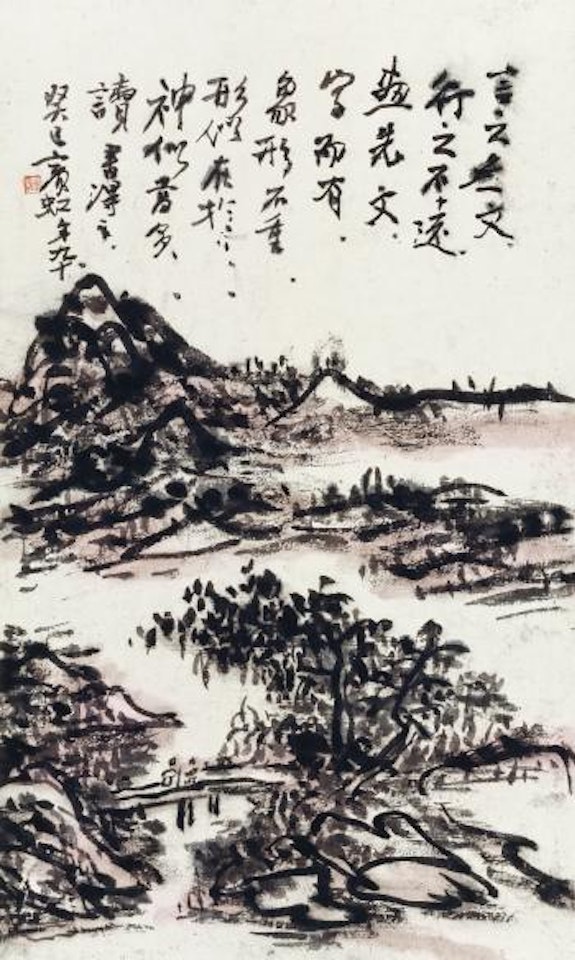 言之無文
行之不遠
畫先文
字而有
象形不重
形似在於
神似多
讀書得之
癸巳賓虹年九十